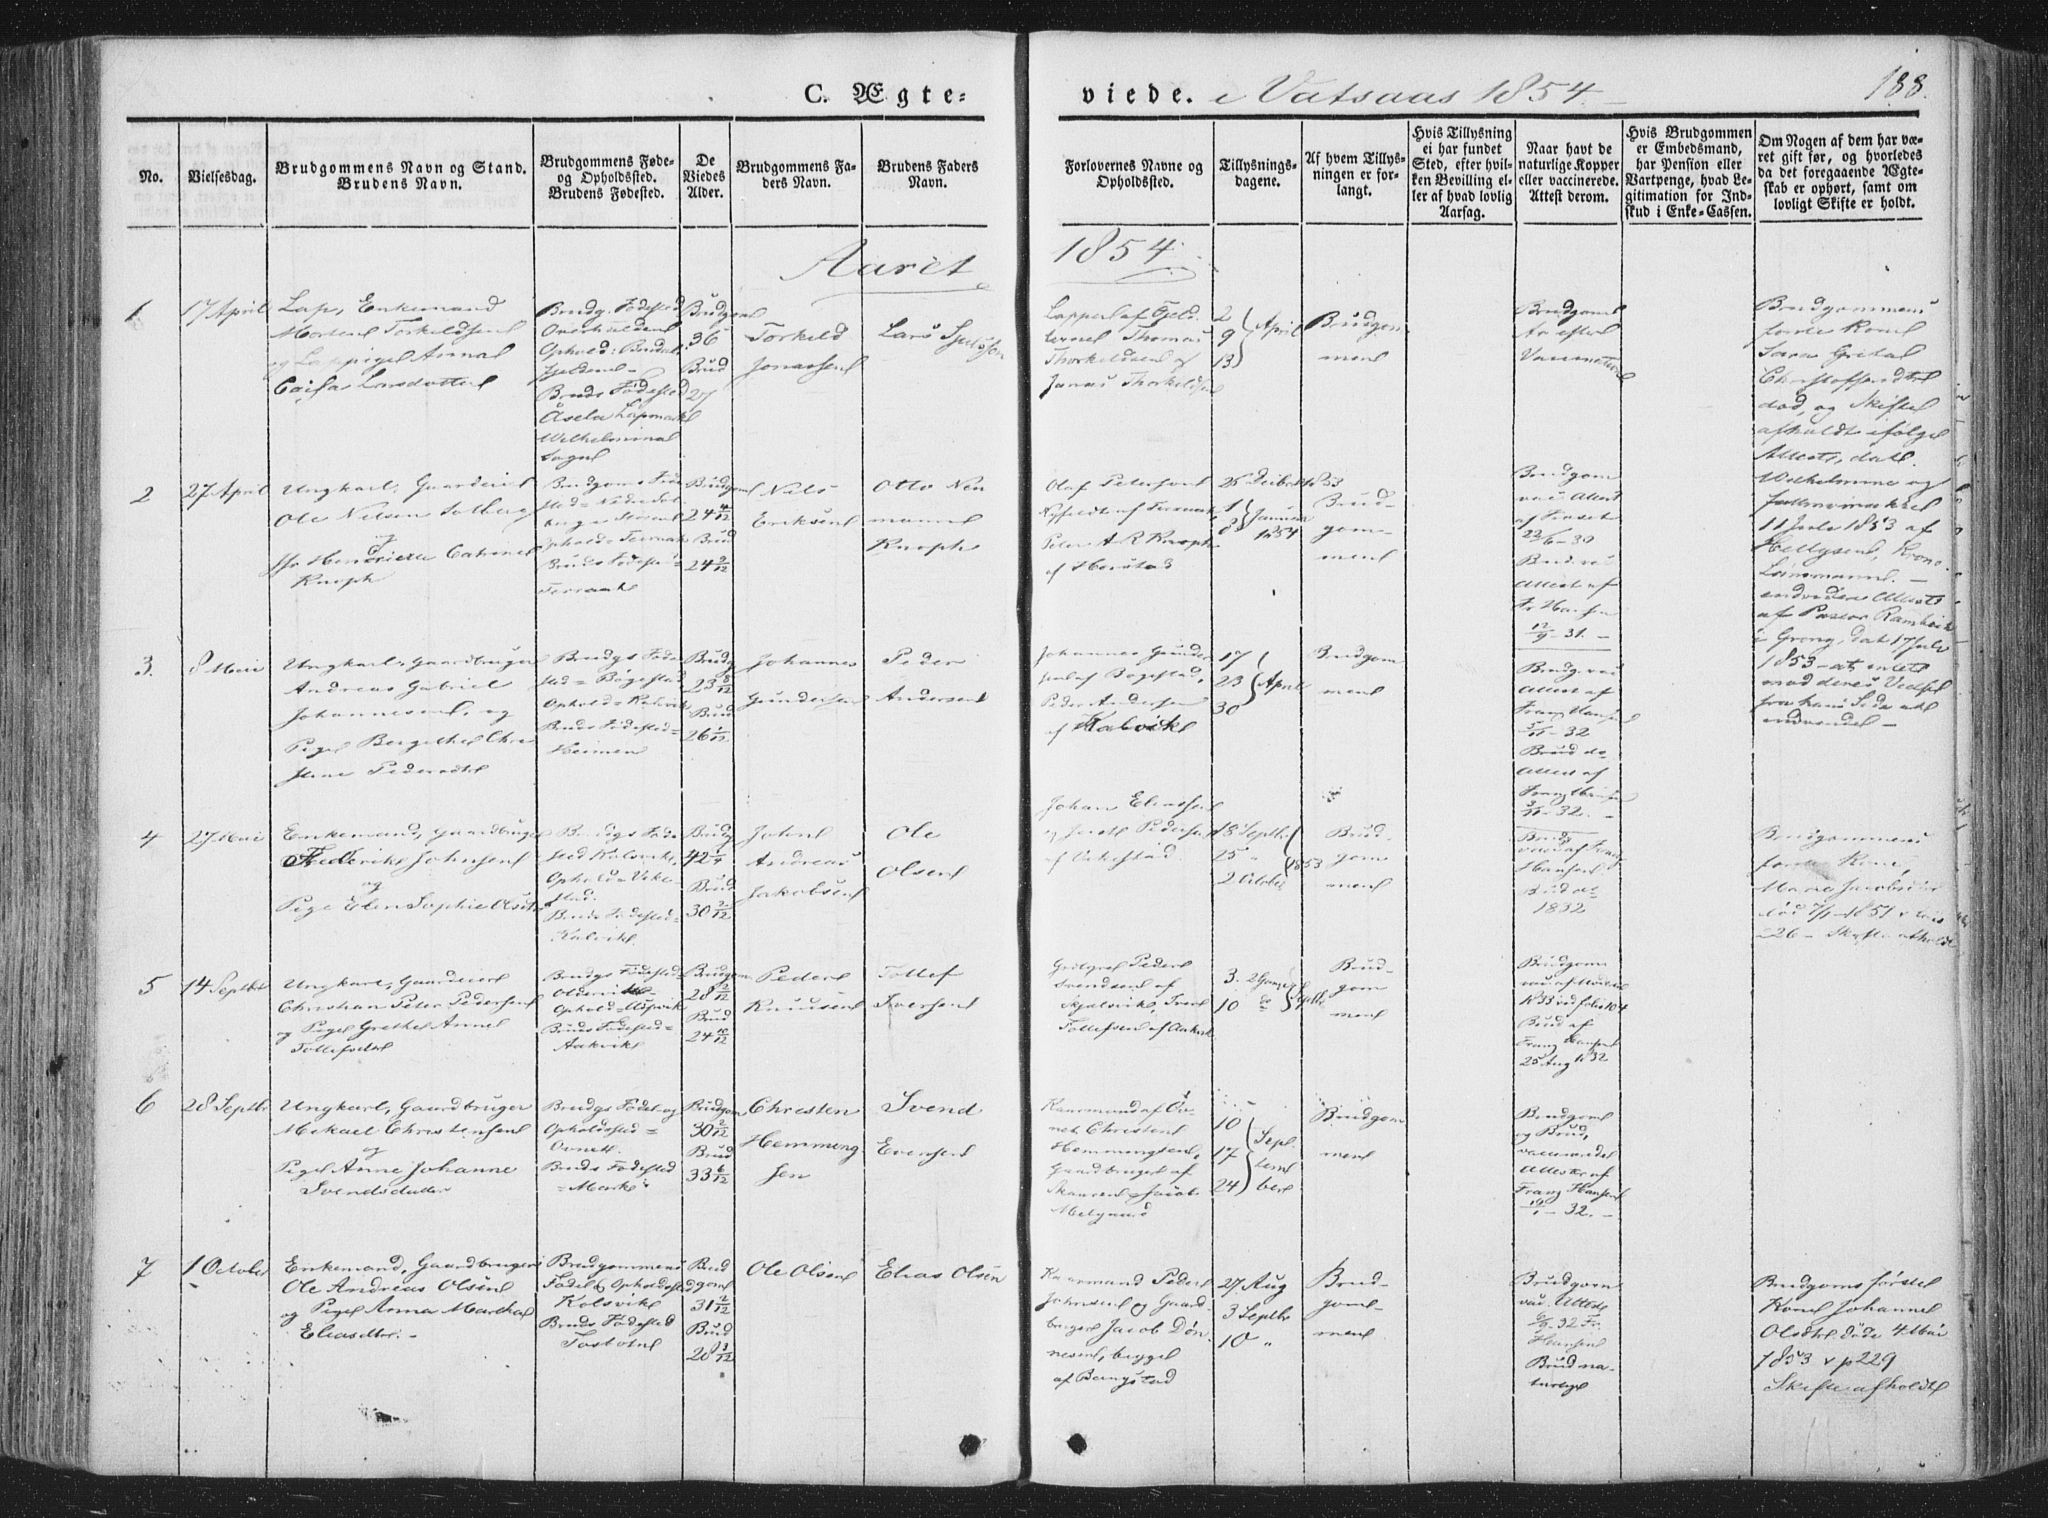 C. Ægte-
viede. i Vatsaas 1854
188.
No.
Vielsesdag.
Brudgommens Navn og Stand.
Brudens Navn.
Brudgommens Føde-
og Opholdssted.
Brudens Fødested.
De
Viedes
Alder.
Brudgommens Fa-
ders Navn.
Brudens Faders
Navn.
Forlovernes Navne og
Opholdssted.
Tillysnings-
dagene.
Af hvem Tillys-
ningen er for-
langt.
Hvis Tillysning
ei har fundet
Sted, efter hvil-
ken Bevilling el-
ler af hvad lovlig
Aarsag.
Naar havt de
naturlige Kopper
eller vaccinerede.
Attest derom.
Hvis Brudgommen
er Embedsmand,
har Pension eller
Vartpenge, hvad Le-
gitimation for Ind-
skud i Enke-Cassen.
Om Nogen af dem har væ-
ret gift før, og hvorledes
da det foregaaende Ægte-
skab er ophørt, samt om
lovligt Skifte er holdt.
Aaret
1854
1
17 April
Lap, Enkemand
Morten Torkeldsen
og Lappigen Anna
Larsdatter
Brudg. Fødested
Ophold
Bruds Fødested
Åsela Lapmark
Wilhelmina
Sogn
Brudgom
36
Brud
27
Torkeld
Jonassen
Lars
Thomas
Thorkeldsen
Jonas Thorkeldsen
2
9
13
April
Brudgom
men
Brudgom
Ar efter
Vaccination
Brudgommens
forrige Kone
Sara Grita
Christoffersdtr
død, og Skifte
afholdt ifølge
Attest, dat.
Wilhelmina og
11 Juli 1853 af
Lænsmann. -
endvidere Attest
af Pastor
i Grong, dat 17 Juli
1853 - at intet
mod deres Vielse
fra hans Side at
indvende -
2
27 April
Ungkarl, Gaardeier
Ole Nilsen Solberg
og
Jfr Henriette Catrine
Knoph
Brudgoms Føde
sted
Ophold = Terraak
Bruds Fødested =
Terraak
Brudgom
24 4/12
Brud
24 2/12
Nils
Eriksen
Otto Neu
mann
Knoph
Olaf Petersen
af Terraak
Peter A R Knoph
af Horstad
26 Decbr 1853
1
8
Januar
1854
Brud-
gom-
men
Brudgom
vac Attest
22/6 - 30
Brud vac
Attest af
Fr Hansen
12/9 - 31. -
3.
8 Mai
Ungkarl, Gaardbruger
Andreas Gabriel
Johannesen, og
Pige Bergithe Chri
stine Pedersdtr
Brudgs Føde
sted = Bøgestad
Ophold = Kalvik
Bruds Fødested =
Heimen
Brudg
23 8/12
Brud
26 1/12
Johannes
Gundersen
Peder
Andersen
Johannes Gunder
sen af Bøgestad,
Peder Andersen
af Kalvik
17
23
30
April
Brudgom
men
Brudg. vac
Attest af
Franz Hansen
5/11 - 32
Brud do
Attest af
Franz Hansen
3/11 - 32. -
4
27 Mai
Enkemand, Gaardbruger
Frederik Johnsen
og
Pige Elen Sophie Olsdtr
Brudgs Føde
sted Kalvik,
Ophold = Vikes
stad.
Bruds Fødested =
Kalvik
Brudg
Brud
30 2/12
John
Andreas
Jakobsen
Ole
Olsen
Johan Eliassen
og Jacob Pedersen
af Vikestad
18 Septbr
25 "
2 October
1853
Brud-
gom
men
Brudgs
vac af Franz
Hansen
Brud do
1832
Brudgommens
forrige Kone,
Maren Jacobsdtr
død 7/1 - 1851
26 - Skifte afholdt
5
14 Septbr
Ungkarl, Gaardeier
Christian Peter Pedersen
og Pige Grethe Anne
Tollefsdtr
Brudgs Fødested =
Ophold = Aspvik
Bruds Fødested =
Aakvik
Brudgom
28 2/12
Brud
24 10/12
Peder
Knudsen
Tollef
Iversen
Peder
Svendsen af
Skjelvik, Iver
Tollefsen af Aakvik
3. 2 Gange
10 do
Septbr
Brud-
gom
men
Brudgom
vac af
1833 ved folio 104
Brud af
Franz Hansen
25 Aug 1832
6
28 Septbr
Ungkarl, Gaardbruger
Mikael Christensen
og
Pige Anne Johanne
Svendsdatter
Brudgs Føde og
Opholdssted =
Ovnett.
Bruds Fødested
= Marke
Brudgom
30 2/12
Brud
33 6/12
Christen
Hemming
sen
Svend
Evensen
Kaarmand af Ov-
net, Christen
Hemmingsen,
Gaardbruger af
Skaaren, Jacob
Melgaard
10
17
24
Sep
tem
ber
Brudgom
men
Brudgom
og Brud,
vaccineret
Attester af
Franz Hansen
10/7 - 32. -
7
1 October
Enkemand, Gaardbruger
Ole Andreas Olsen
og Pige Anna Martha
Eliasdtr. -
Brudgommens
Føde & Opholdssted
Kolsvik
Bruds Fødested
Tosbotn
Brud
gom
31 2/12
Brud
20 3/12
Ole Olsen
Elias Olsen
Kaarmand Peder
Johnsen og Gaard-
bruger Jacob Døn-
nesen, begge
af Bangstad
27 Aug
3 Septbr
10 "
Brud-
gom-
men
Brudgom
vac. Attest
6/9 - 32 Fr.
Hansen
Brud na-
turlige
Brudgoms første
Kone Johanne
Olsdtr døde 4 Mai
1853 v p 229
Skifte afholdt